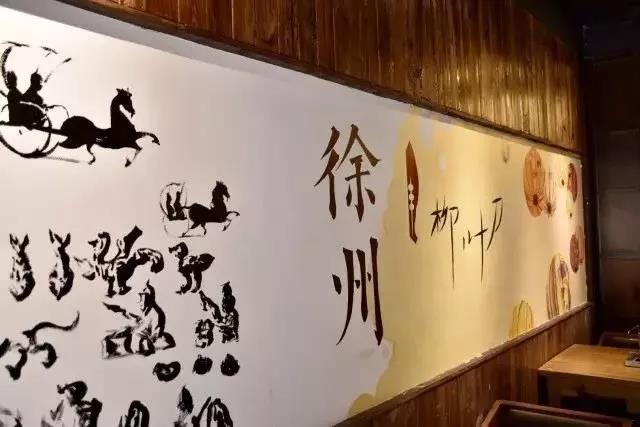 徐州
柳叶刀